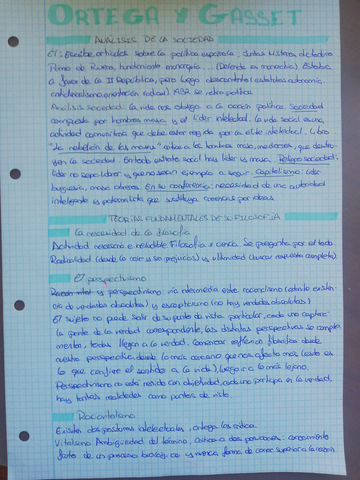 ORTEGA Y GASSET
ANÁLISIS DE LA SOCIEDAD
Escribe artículos sobre la política española, Juntas Militares de
Primo de Rivera, hundimiento monarquía... (Defiende ex monarchia) Estaba
a favor de la II República, pero luego descontento (estatutos autonomía
anticlericalismo, orientación radical) 1932 se retira política.
Análisis sociedad: la vida nos obliga a la acción política. Sociedad
compuesta por hombres masa y el líder intelectual. La vida social es una
actividad comunitaria que debe estar regida por el elite intelectual. Libro
"La rebelión de las masas" critica a los hombres masa, mediocres, que
en la sociedad. En todo estrato social hay líder y masa. Peligro sociedad:
líder no sepa liderar y que no sean ejemplo a seguir. Capitalismo: líder
burguesía, masa obreros. En su conferencia: necesidad de una autoridad
inteligente y potente que sustituya creencias por ideas.
TEORÍAS FUNDAMENTALES DE SU FILOSOFÍA
La necesidad de la filosofía
Actividad necesaria e ineludible. Filosofía ≠ ciencia. Se pregunta por el todo
Radicalidad (desde la raíz y sin prejuicios) y ultimidad (buscar respuesta completa).
El perspectivismo
y perspectivismo: vía intermedia entre racionalismo (existen
de verdades absolutas) y escepticismo (no hay verdades absolutas)
El sujeto no puede salir de su punto de vista particular, cada uno captura
la parte de la verdad correspondiente, las distintas perspectivas se comple
mentan, todas llegan a la verdad. Comenzar reflexión filosófica desde
nuestra perspectiva desde lo más cercano que nos afecta más (esto es
lo que confiere el sentido a la vida), llegar a lo más lejano.
Perspectivismo no está reñido con objetividad, cada uno participa en la verdad,
hay tantas realidades como puntos de vista.
Raciovitalismo
Existen dos posturas intelectuales, Ortega las critica.
Vitalismo: Ambigüedad del término, critica a dos posiciones: conocimiento
fruto de un proceso biológico y única forma de conocer superior a la razón